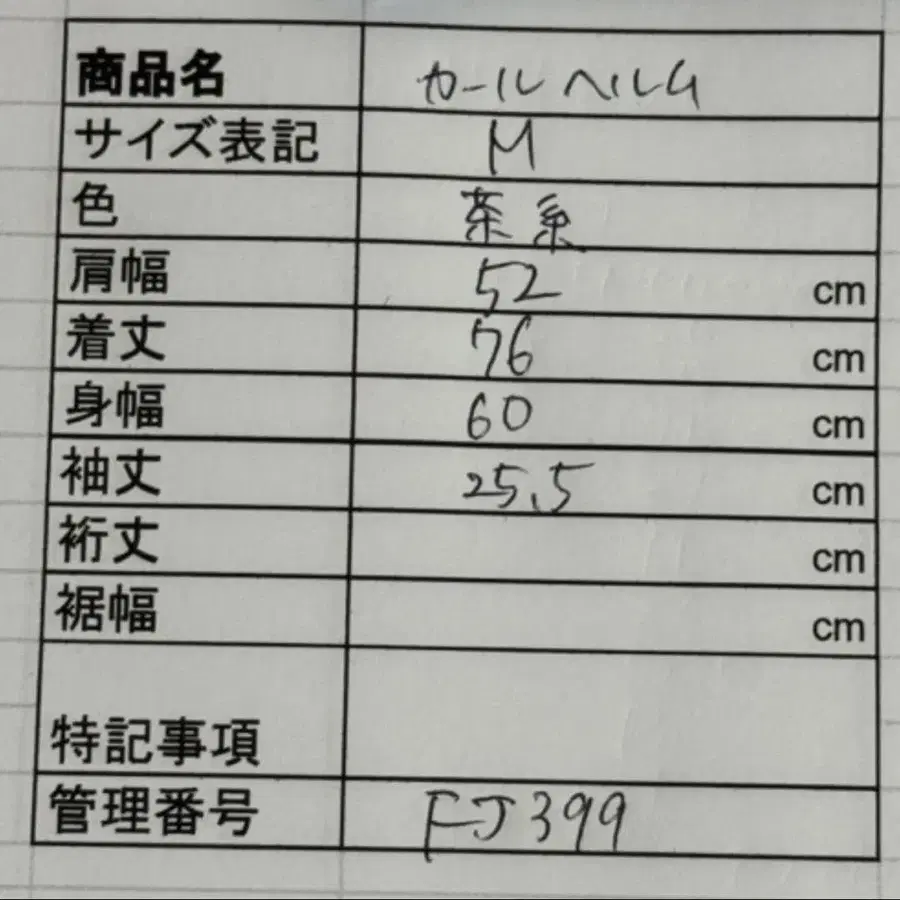 商品名 カールヘルム
サイズ表記 M
色 茶系
肩幅 52 cm
着丈 76 cm
身幅 60 cm
袖丈 25.5 cm
裄丈 cm
裾幅 cm
特記事項
管理番号 FJ399